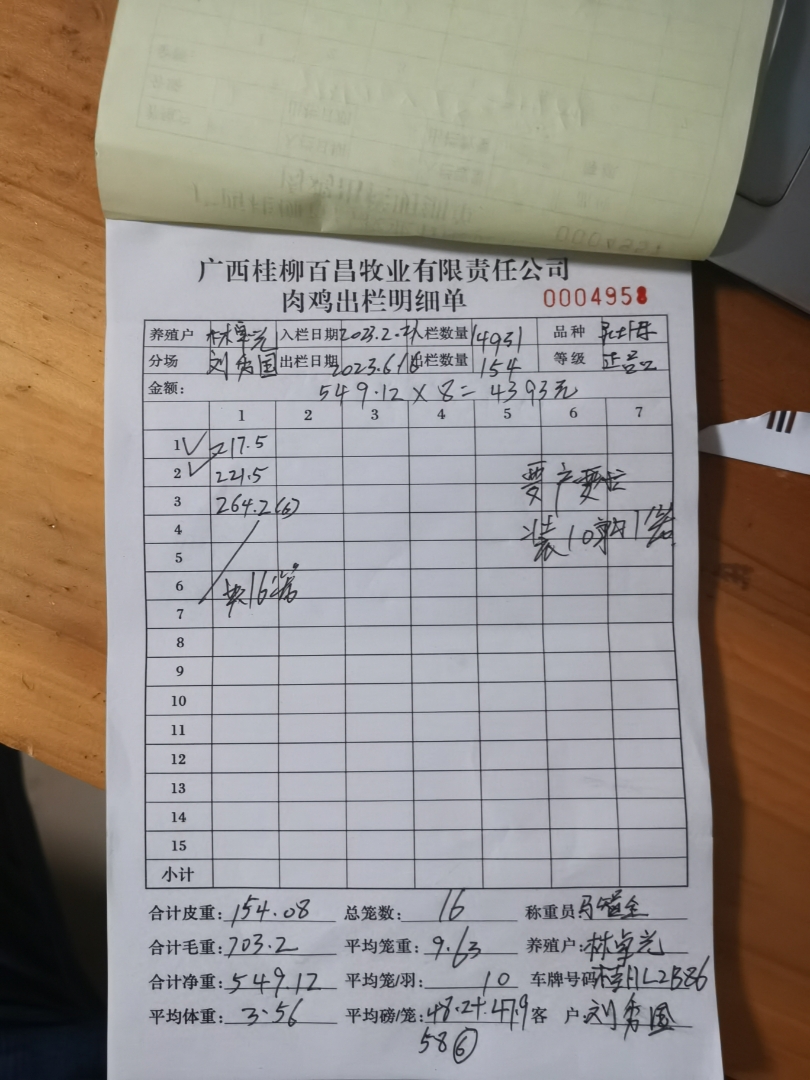 广西桂柳百昌牧业有限责任公司
肉鸡出栏明细单 0004958
养殖户 林卓光 入栏日期 2023.2. 入栏数量 14931 品种
分场 刘秀国 出栏日期 2023.6/16 出栏数量 154 等级 正品
金额: 549.12×8=4393元
1 2 3 4 5 6 7
1 217.5
2 221.5
3 264.2(6)
4
5
6 共16笼
7
8
9
10
11
12
13
14
15
小计
要
装10 1笼
合计皮重: 154.08 总笼数: 16 称重员
合计毛重: 703.2 平均笼重: 9.63 养殖户: 林卓光
合计净重: 549.12 平均笼/羽: 10 车牌号码
平均体重: 3.56 平均磅/笼: 48.2+.47.9 客 户: 刘秀国
58⑥